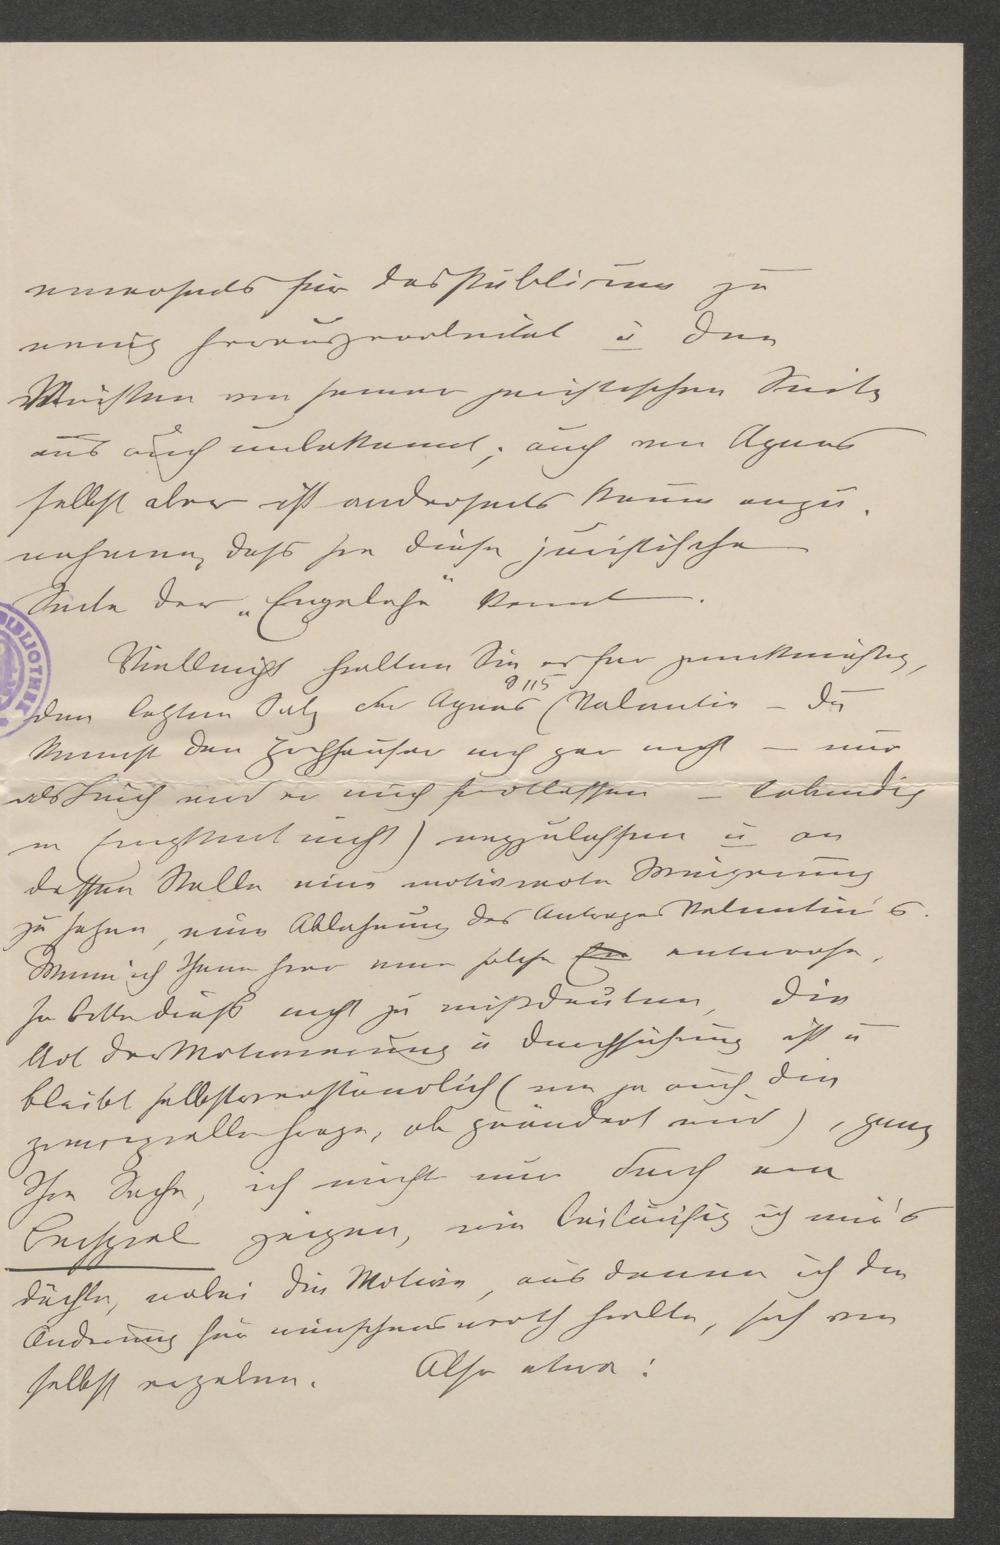 einerseits für das Publicum zu
wenig herausgearbeitet u den
Meisten von seiner juristischen Seite
aus auch unbekannt; auch von Agnes
selbst aber ist anderseits kaum anzu-
nehmen, dass sie diese juristische
Seite der „Engelehe" kennt.
Vielleicht halten Sie es für zweckmäßig,
den letzten Satz der Agnes S 115 (Valentin – Du
kennst den gar nicht – nur
als und er mich – lebendig
nicht) wegzulassen u an
dessen Stelle eine motivierte Weigerung
zu setzen, eine Ablehnung des Antrages Valentin's.
Wenn ich Ihnen hier eine solche entwerfe,
so bitte dieß nicht zu mißdeuten, die
Art der Motivierung u Durchführung ist u
bleibt selbstverständlich (wie ja auch die
prinzipielle Frage, ob geändert wird), ganz
Ihre Sache, ich möchte nur durch ein
Beispiel zeigen, wie beiläufig ich mir's
dächte, wobei die Motive, aus denen ich die
Änderung für wünschenswerth hielte, sich von
selbst ergeben. Also etwa:
BIBLIOTHEK